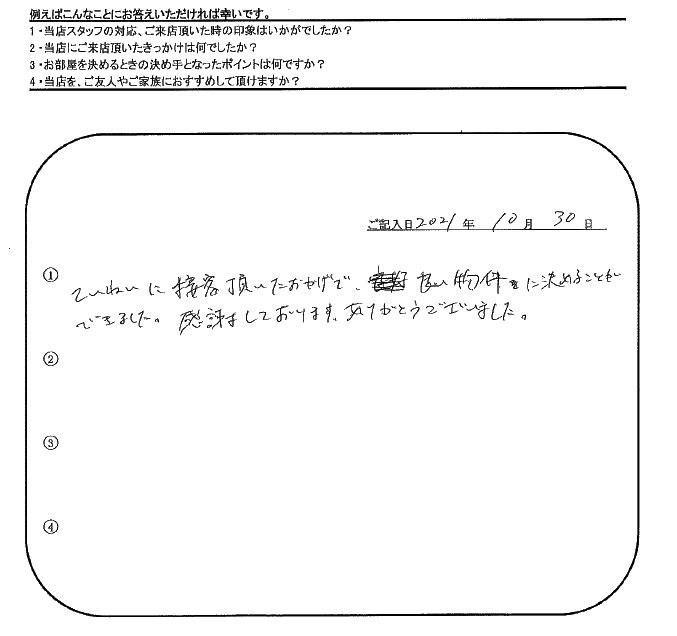 例えばこんなことにお答えいただければ幸いです。
1・当店スタッフの対応、ご来店頂いた時の印象はいかがでしたか？
2・当店にご来店頂いたきっかけは何でしたか？
3・お部屋を決めるときの決め手となったポイントは何ですか？
4・当店を、ご友人やご家族におすすめして頂けますか？
ご記入日2021年 10月 30日
① ていねいに接客頂いたおかげで、良い物件に決めることが
できました。感謝しております。ありがとうございました。
②
③
④